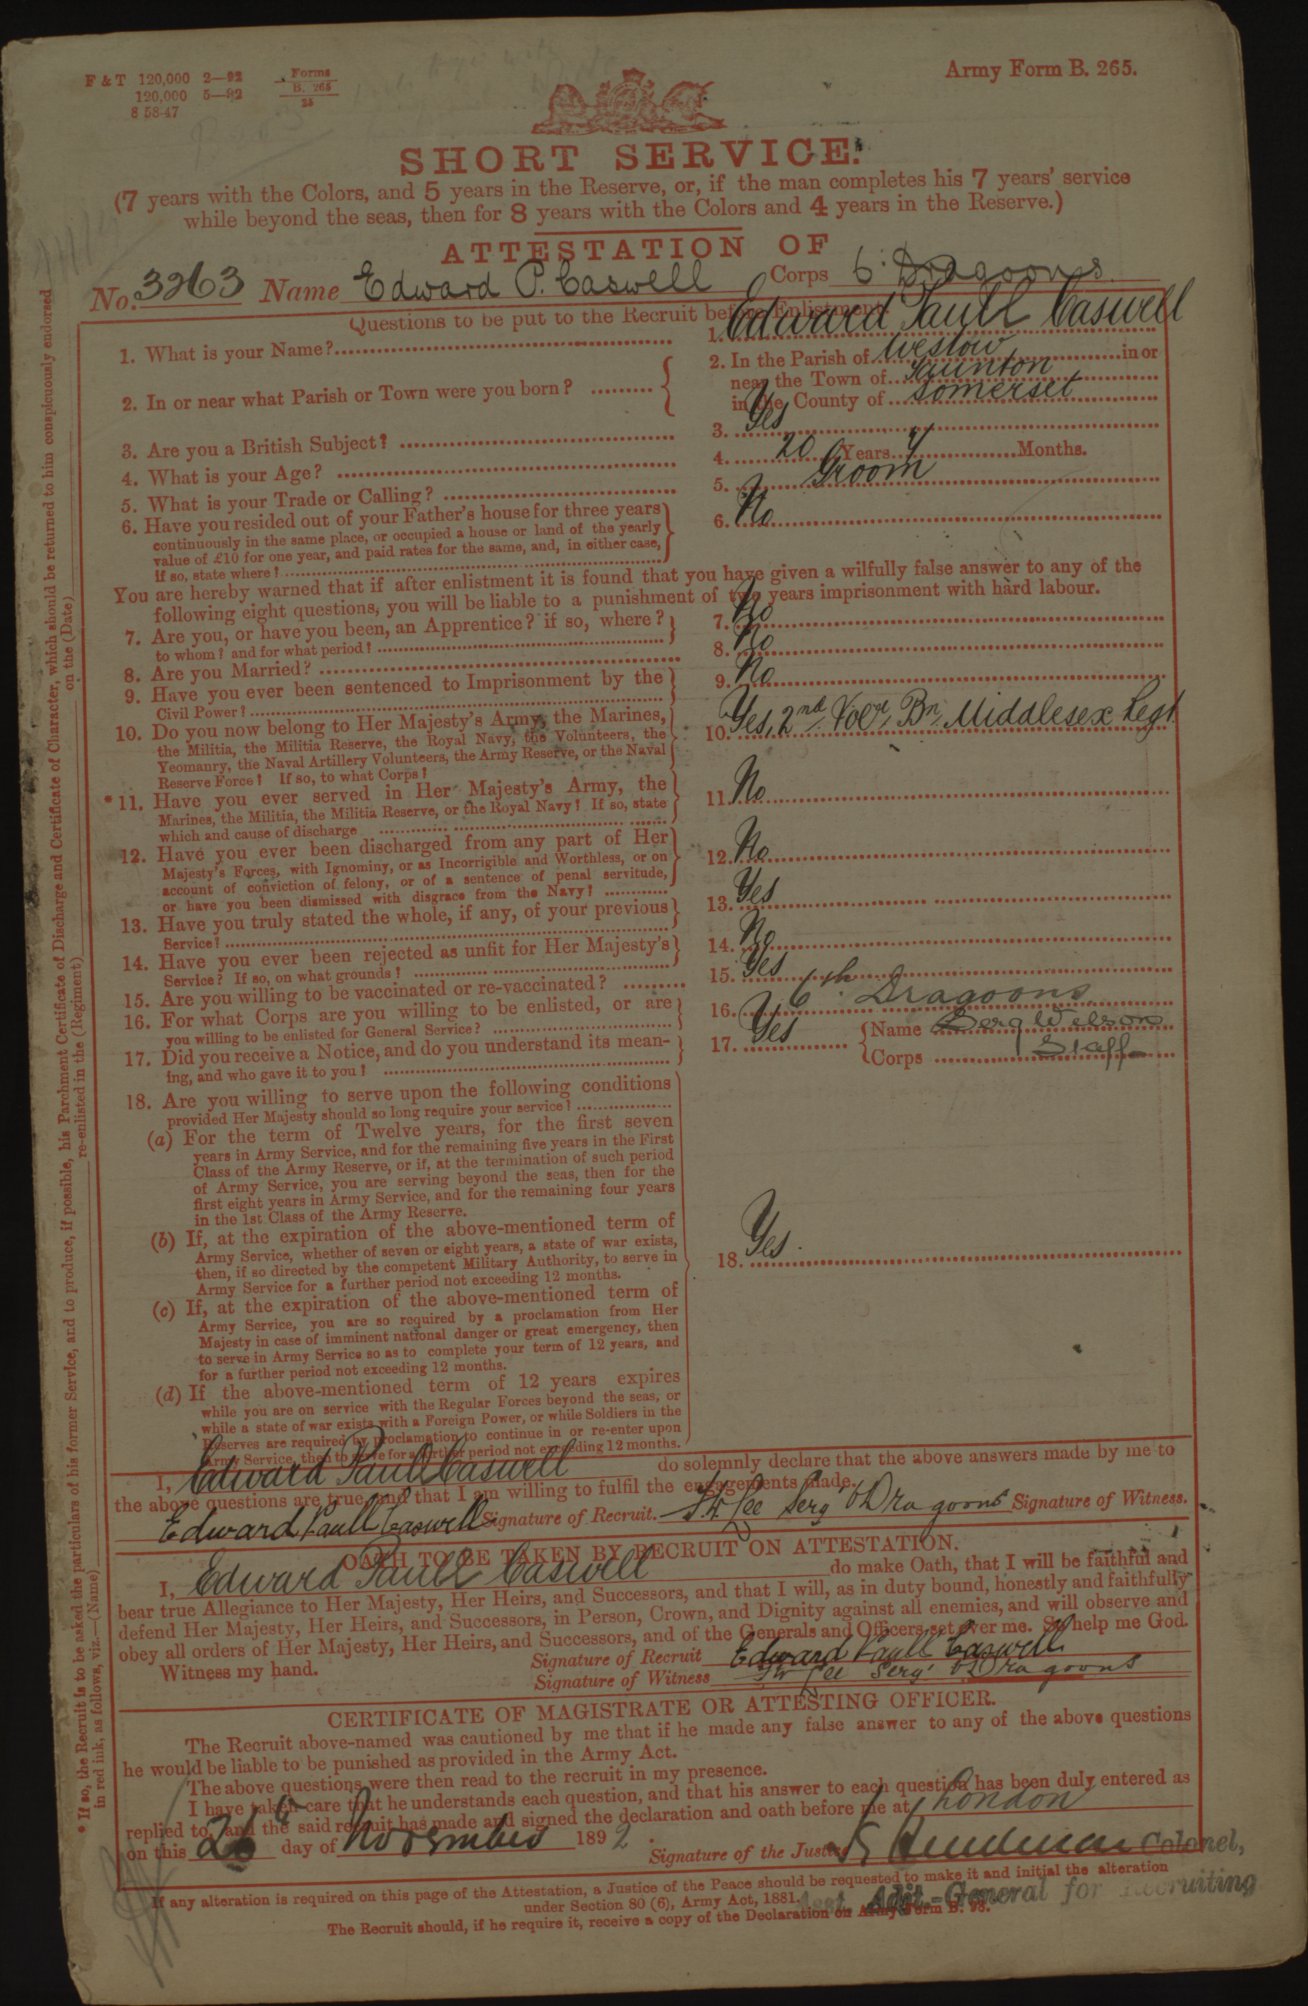 F & T 120,000 2—92
120,000 5—92
8 58-47
Forms
B. 265
25
Army Form B. 265.
SHORT SERVICE.
(7 years with the Colors, and 5 years in the Reserve, or, if the man completes his 7 years' service
while beyond the seas, then for 8 years with the Colors and 4 years in the Reserve.)
ATTESTATION OF
No. 3263 Name Edward P. Caswell Corps 6. Dragoons
Questions to be put to the Recruit before Enlistment
1. What is your Name? 1. Edward Paull Caswell
2. In or near what Parish or Town were you born? 2. In the Parish of Weslow in or
near the Town of Taunton
in the County of Somerset
3. Are you a British Subject? 3. Yes
4. What is your Age? 4. 20 Years 4 Months.
5. What is your Trade or Calling? 5. Groom
6. Have you resided out of your Father's house for three years
continuously in the same place, or occupied a house or land of the yearly
value of £10 for one year, and paid rates for the same, and, in either case,
if so, state where? 6. No
You are hereby warned that if after enlistment it is found that you have given a wilfully false answer to any of the
following eight questions, you will be liable to a punishment of two years imprisonment with hard labour.
7. Are you, or have you been, an Apprentice? if so, where?
to whom? and for what period? 7. No
8. Are you Married? 8. No
9. Have you ever been sentenced to Imprisonment by the
Civil Power? 9. No
10. Do you now belong to Her Majesty's Army, the Marines,
the Militia, the Militia Reserve, the Royal Navy, the Volunteers, the
Yeomanry, the Naval Artillery Volunteers, the Army Reserve, or the Naval
Reserve Force? If so, to what Corps? 10. Yes, 2nd Vol. Bn. Middlesex Regt.
* 11. Have you ever served in Her Majesty's Army, the
Marines, the Militia, the Militia Reserve, or the Royal Navy? If so, state
which and cause of discharge 11. No
12. Have you ever been discharged from any part of Her
Majesty's Forces, with Ignominy, or as Incorrigible and Worthless, or on
account of conviction of felony, or of a sentence of penal servitude,
or have you been dismissed with disgrace from the Navy? 12. No
13. Have you truly stated the whole, if any, of your previous
Service? 13. Yes
14. Have you ever been rejected as unfit for Her Majesty's
Service? If so, on what grounds? 14. No
15. Are you willing to be vaccinated or re-vaccinated? 15. Yes
16. For what Corps are you willing to be enlisted, or are
you willing to be enlisted for General Service? 16. 6th Dragoons
17. Did you receive a Notice, and do you understand its mean-
ing, and who gave it to you? 17. Yes Name Serg Wilson
Corps Staff
18. Are you willing to serve upon the following conditions
provided Her Majesty should so long require your service?
(a) For the term of Twelve years, for the first seven
years in Army Service, and for the remaining five years in the First
Class of the Army Reserve, or if, at the termination of such period
of Army Service, you are serving beyond the seas, then for the
first eight years in Army Service, and for the remaining four years
in the 1st Class of the Army Reserve.
(b) If, at the expiration of the above-mentioned term of
Army Service, whether of seven or eight years, a state of war exists,
then, if so directed by the competent Military Authority, to serve in
Army Service for a further period not exceeding 12 months.
18. Yes.
(c) If, at the expiration of the above-mentioned term of
Army Service, you are so required by a proclamation from Her
Majesty in case of imminent national danger or great emergency, then
to serve in Army Service so as to complete your term of 12 years, and
for a further period not exceeding 12 months.
(d) If the above-mentioned term of 12 years expires
while you are on service with the Regular Forces beyond the seas, or
while a state of war exists with a Foreign Power, or while Soldiers in the
Reserves are required by proclamation to continue in or re-enter upon
Army Service, then to serve for a further period not exceeding 12 months.
I, Edward Paull Caswell do solemnly declare that the above answers made by me to
the above questions are true, and that I am willing to fulfil the engagements made.
Edward Paull Caswell Signature of Recruit. Lee Serg 6 Dragoons Signature of Witness.
OATH TO BE TAKEN BY RECRUIT ON ATTESTATION.
I, Edward Paull Caswell do make Oath, that I will be faithful and
bear true Allegiance to Her Majesty, Her Heirs, and Successors, and that I will, as in duty bound, honestly and faithfully
defend Her Majesty, Her Heirs, and Successors, in Person, Crown, and Dignity against all enemies, and will observe and
obey all orders of Her Majesty, Her Heirs, and Successors, and of the Generals and Officers set over me. So help me God.
Witness my hand. Signature of Recruit Edward Paull Caswell
Signature of Witness Lee Serg 6 Dragoons
CERTIFICATE OF MAGISTRATE OR ATTESTING OFFICER.
The Recruit above-named was cautioned by me that if he made any false answer to any of the above questions
he would be liable to be punished as provided in the Army Act.
The above questions were then read to the recruit in my presence.
I have taken care that he understands each question, and that his answer to each question has been duly entered as
replied to, and the said recruit has made and signed the declaration and oath before me at London
on this 26th day of November 1892.
Signature of the Justice Colonel,
Asst. Adjt.-General for Recruiting
If any alteration is required on this page of the Attestation, a Justice of the Peace should be requested to make it and initial the alteration
under Section 80 (6), Army Act, 1881.
The Recruit should, if he require it, receive a copy of the Declaration on Army Form B. 98.
* If so, the Recruit is to be asked the particulars of his former Service, and to produce, if possible, his Parchment Certificate of Discharge and Certificate of Character, which should be returned to him conspicuously endorsed
in red ink, as follows, viz.—(Name) re-enlisted in the (Regiment) on the (Date)